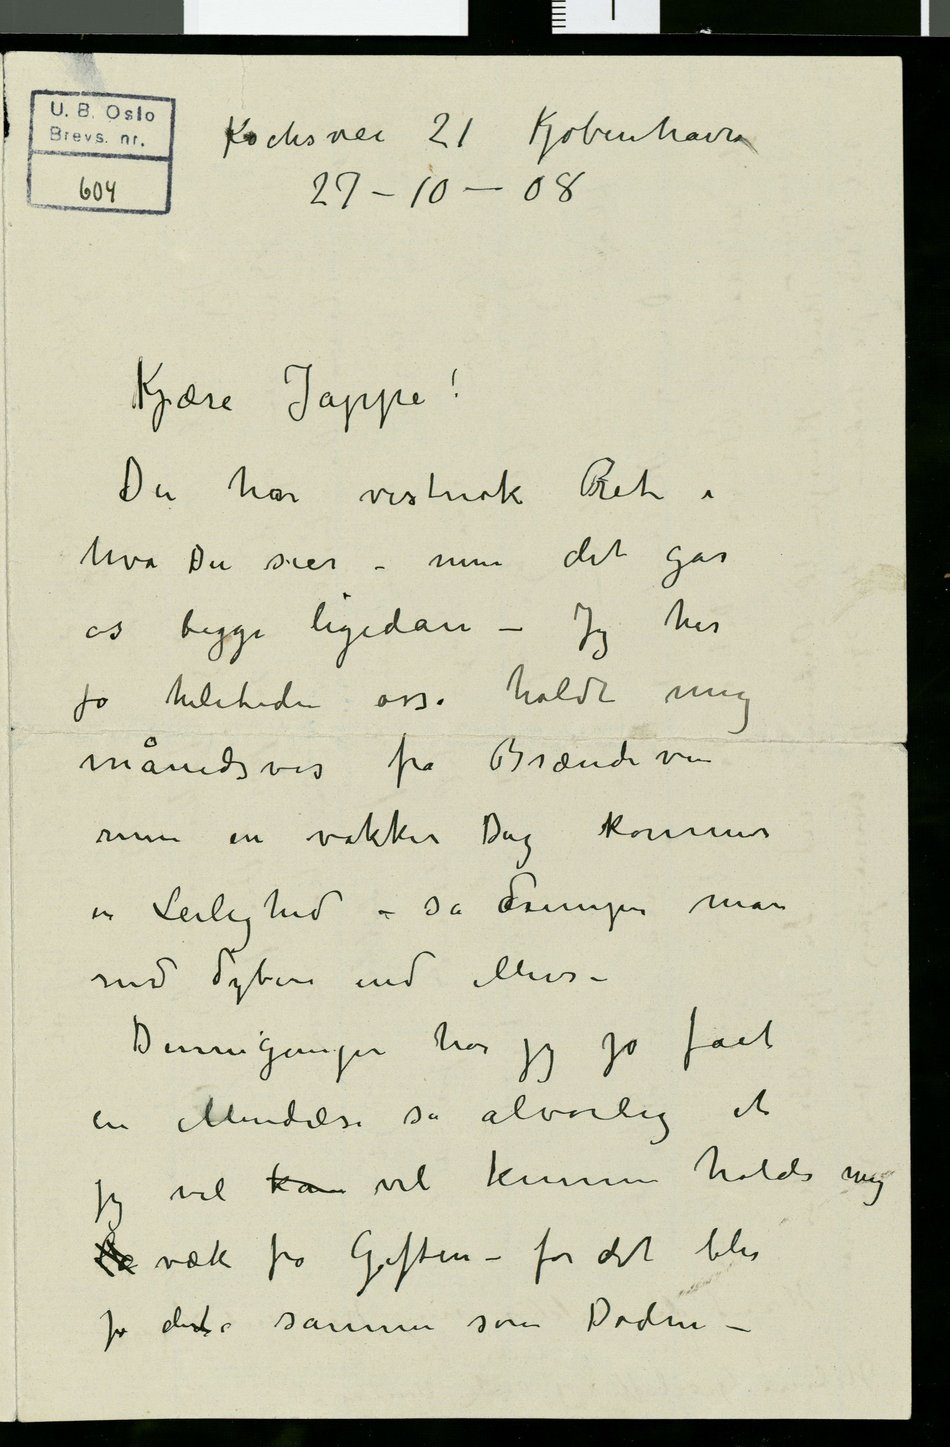 U. B. Oslo
Brevs. nr.
604
Kochsvei 21 Kjøbenhavn
27-10-08
Kjære Jappe!
Du har vistnok Ret i
hva Du sier - men det går
os begge ligedan - Jeg har
jo heletiden også holdt mig
månedsvis fra Brændevin
men en vakker Dag kommer
en Leilighed - så dumper man
ned dybere end ellers -
Dennegangen har jeg jo fået
en Mindelse så alvorlig at
jeg vel kan vil kunne holde mig
væk fra Giften - for det blir
jo det samme som Døden -